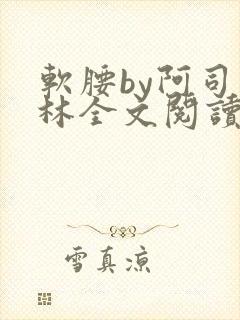 軟腰by阿司
林全文閱讀
雪真凉